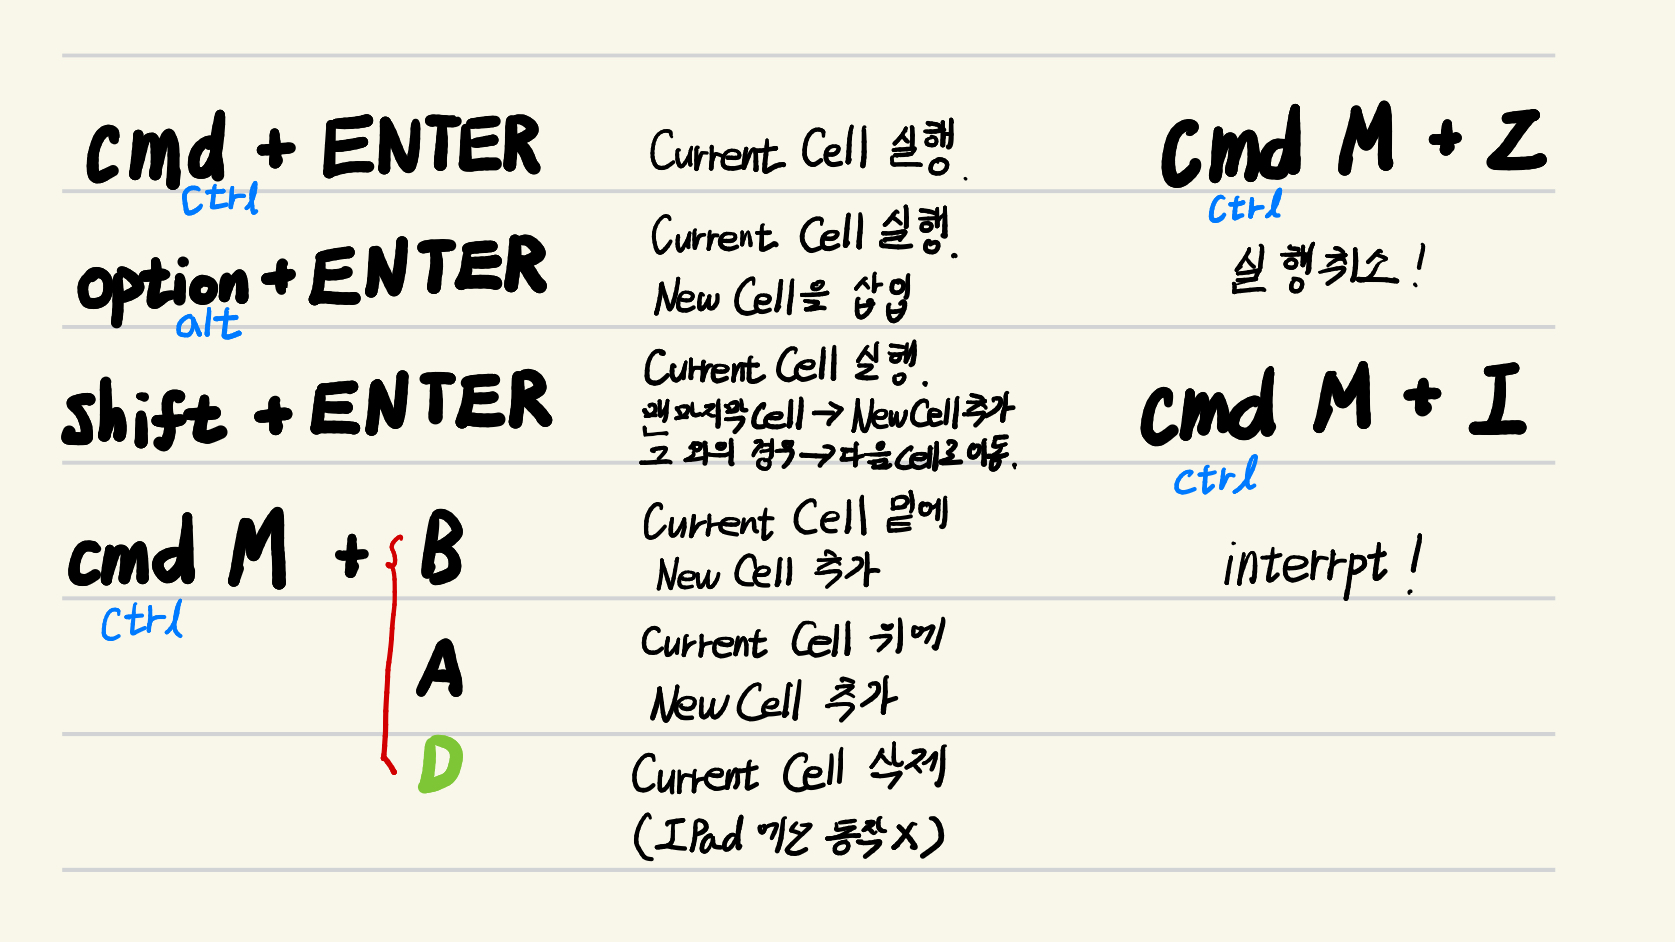 cmd + ENTER
ctrl
Current Cell 실행.
option + ENTER
alt
Current Cell 실행.
New Cell을 삽입
shift + ENTER
Current Cell 실행.
맨 마지막 cell → New Cell 추가
그 외의 경우 → 다음 cell로 이동.
cmd M + B
ctrl
Current Cell 밑에
New Cell 추가
A
Current Cell 위에
New Cell 추가
D
Current Cell 삭제
(IPad 에선 동작 X)
cmd M + Z
ctrl
실행취소!
cmd M + I
ctrl
interrpt!